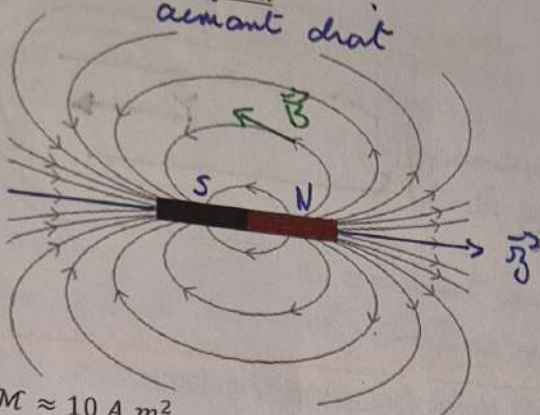 aimant droit
B
S N
M ≈ 10 A m²